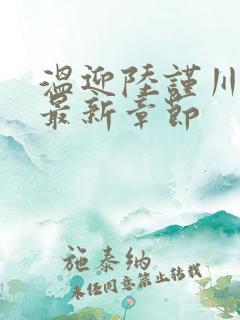 温迎陸謹川
最新章節
施泰纳
未经同意禁止转载